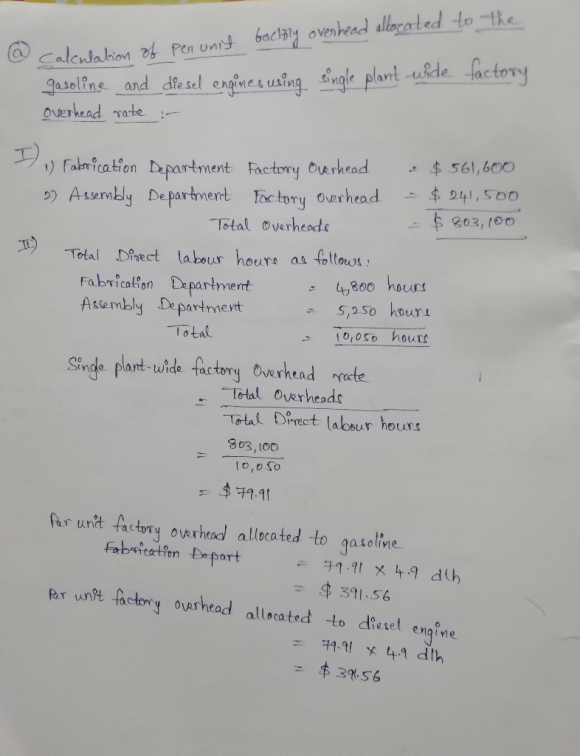 @ Calculation of Per unit factory overhead allocated to the
gasoline and diesel engines using single plant-wide factory
overhead rate :-
I) 1) Fabrication Department Factory Overhead = $ 561,600
2) Assembly Department Factory Overhead = $ 241,500
Total Overheads = $ 803,100
II) Total Direct labour hours as follows:
Fabrication Department = 4,800 hours
Assembly Department = 5,250 hours
Total = 10,050 hours
Single plant-wide factory Overhead rate
= Total Overheads
Total Direct labour hours
= 803,100
10,050
= $ 79.91
Per unit factory overhead allocated to gasoline
Fabrication Depart = 79.91 x 4.9 dlh
= $ 391.56
Per unit factory overhead allocated to diesel engine
= 79.91 x 4.9 dlh
= $ 391.56